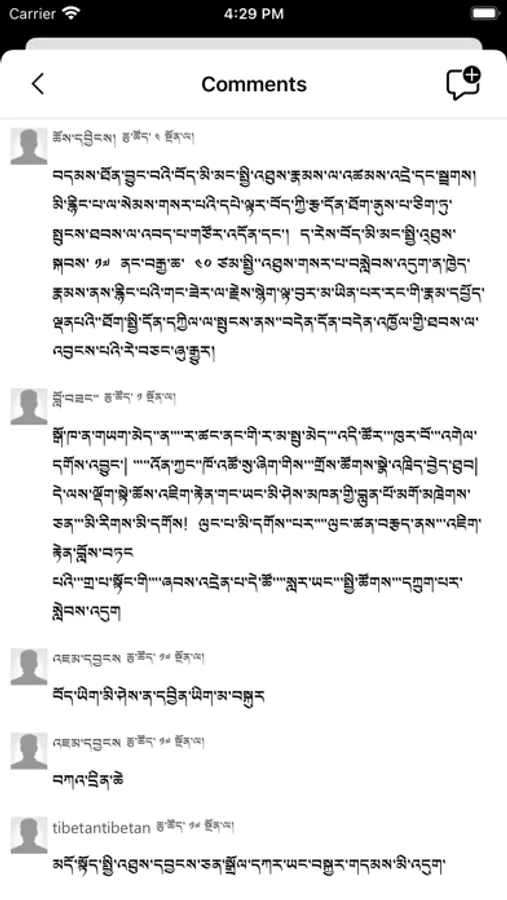 Carrier 4:29 PM
Comments
ཆོས་དབྱིངས། ཆུ་ཚོད་ ༤ སྔོན་ལ།
བདམས་ཐོན་བྱུང་བའི་བོད་མི་མང་སྤྱི་འཐུས་རྣམས་ལ་འཚམས་འདྲི་དང་སྦྲགས།
མི་རྙིང་པ་ལ་སེམས་གསར་པའི་དཔེ་ལྟར་བོད་ཀྱི་རྩ་དོན་ཐོག་ནུས་པ་ཅིག་ཏུ་
སྤུངས་ཐབས་ལ་འབད་པ་གཙོར་འདོན་དང་། ད་རེས་བོད་མི་མང་སྤྱི་འཐུས་
སྐབས་ ༡༧ ནང་བརྒྱ་ཆ་ ༤༠ ཙམ་སྤྱི་འཐུས་གསར་པ་བསླེབས་འདུག་ན་ཁྱེད་
རྣམས་ནས་རྙིང་པའི་གང་ཟེར་ལ་རྗེས་སྙེག་ལྟ་བུར་མ་ཡིན་པར་རང་གི་རྣམ་དཔྱོད་
ལྡནཔའི་ཐོག་སྤྱི་དོན་དཀྱིལ་ལ་སྤུངས་ནས་བདེན་དོན་བདེན་འཁྱོལ་གྱི་ཐབས་ལ་
འབུངས་པའི་རེ་བཅང་ཞུ་རྒྱུར།
བློ་བཟང་ ཆུ་ཚོད་ ༡ སྔོན་ལ།
སྒོ་ཁ་ན་གཡག་མེད་ན་་་་ར་ཚང་ནང་གི་ར་མ་སྤུ་མེད་་་འདི་ཚོར་་་ཁུར་བོ་་་འགེལ་
དགོས་འབྱུང་། ་་་་་འོན་ཀྱང་ཁོ་འཚོ་སུ་ཞིག་གིས་་་གྲོས་ཚོགས་སྣེ་འཁྲིད་བྱེད་ཐུབ།
དེ་ལས་ལྡོག་སྟེ་ཆོས་འཇིག་རྟེན་གང་ཡང་མི་ཤེས་མཁན་གྱི་བླུན་པོ་མགོ་མཁྲེགས་
ཅན་་་མི་རིགས་མི་དགོས! ལུང་པ་མི་དགོས་པར་་་ལུང་ཚན་བརྩད་ནས་་་འཇིག་
རྟེན་བློས་བཏང
པའི་་་གྲ་པ་སྟོང་གི་་་་ཞབས་འདྲེན་པ་དེ་ཚོ་་་་སླར་ཡང་་་སྤྱི་ཚོགས་་་དཀྲུག་པར་
སླེབས་འདུག
འཇམ་དབྱངས ཆུ་ཚོད་ ༡༧ སྔོན་ལ།
བོད་ཡིག་མི་ཤེས་ན་དབྱིན་ཡིག་མ་བསྐུར
འཇམ་དབྱངས ཆུ་ཚོད་ ༡༧ སྔོན་ལ།
བཀའ་དྲིན་ཆེ
tibetantibetan ཆུ་ཚོད་ ༡༧ སྔོན་ལ།
མདོ་སྟོད་སྤྱི་འཐུས་དབྱངས་ཅན་སྒྲོལ་དཀར་ཡང་བསྐྱར་གདམས་མི་འདུག་